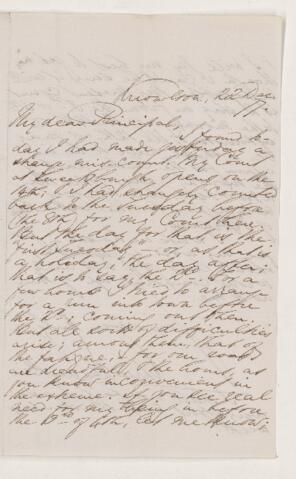 Knowlson, 22d Dec.
My dear Principal,
I found to-
day I had made yesterday a
strange mis-count. My Court
at opens on the
14th; I had changed
back to the Tuesday before
(the 8th) for my Court here.
But the day for that is the
"first Tuesday" or as that is
a holiday, the day after;
that is to say the 2d. For a
few hours I tried to arrange
for a run into town before
the 2d; coming out then.
But all sorts of difficulties
arise; among them, that of
the fatigue, for our roads
are dreadful, & the hours, as
you know inconvenient in
the extreme. If you see real
need for my being in before
the 3rd or 4th, let me know;